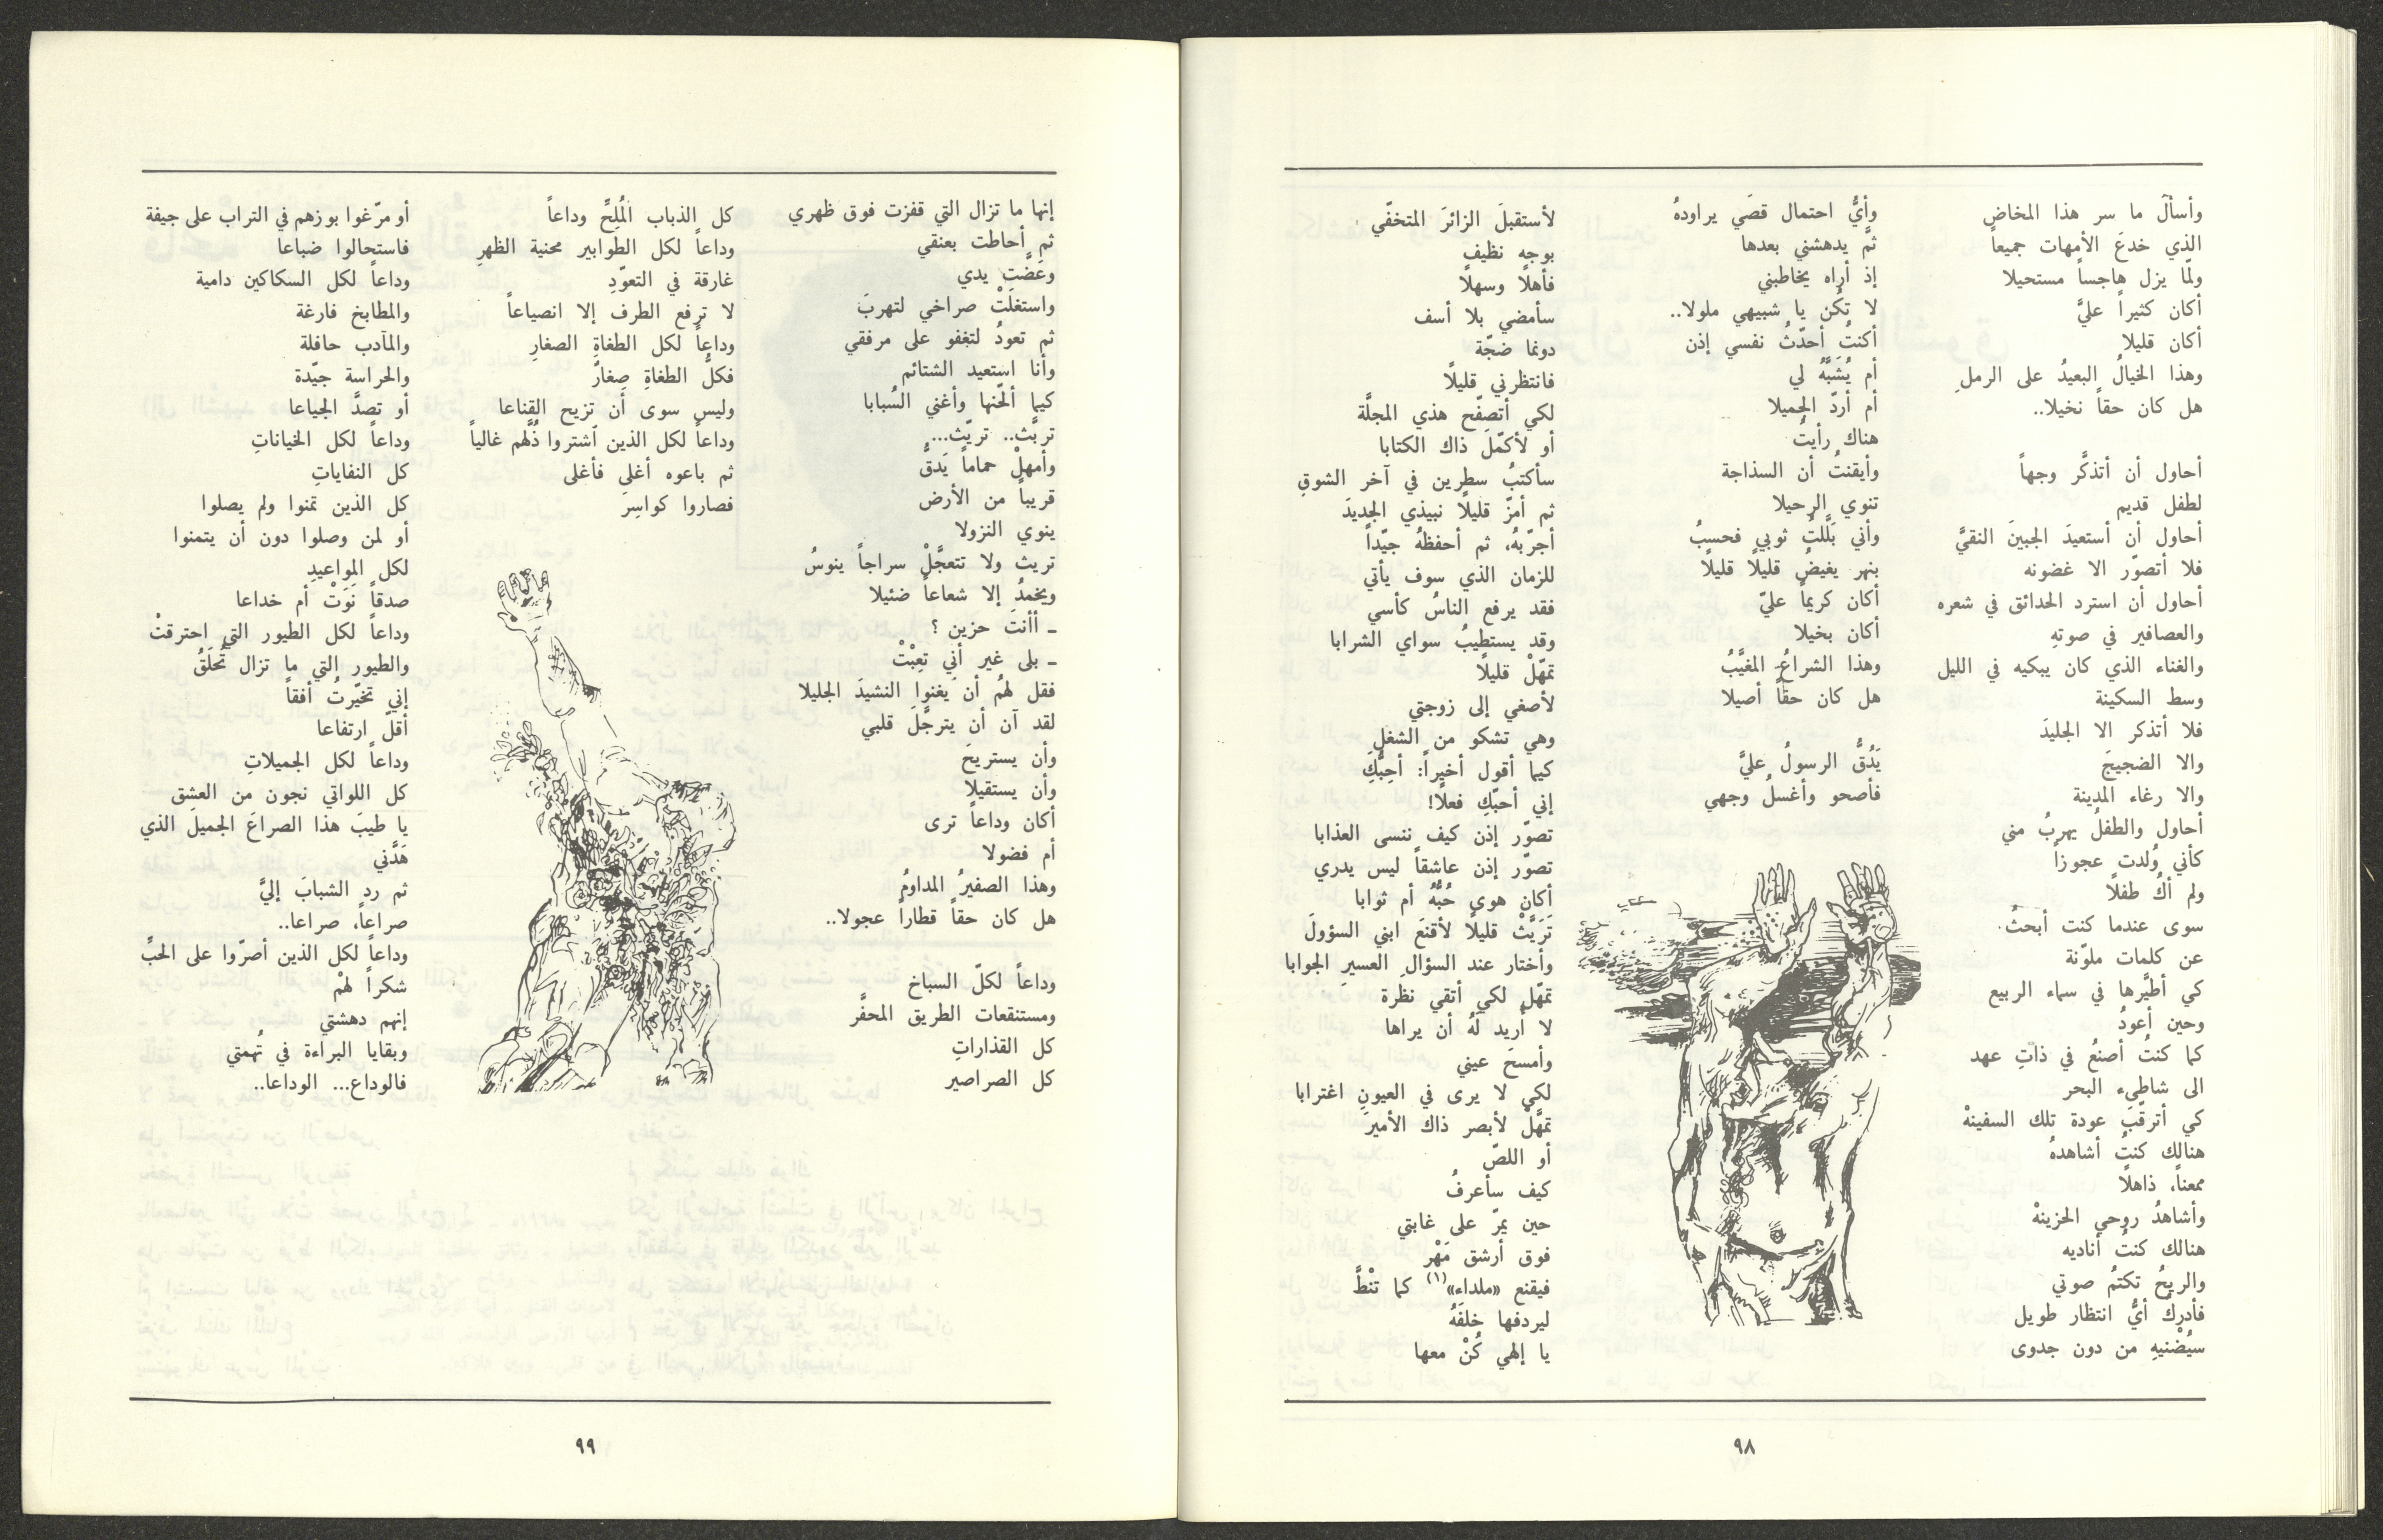 وأسألَ ما سر هذا المخاض
الذي خدعَ الأمهات جميعاً
ولمّا يزل هاجساً مستحيلا
أكان كثيراً عليَّ
أكان قليلا
وهذا الخيالُ البعيدُ على الرملِ
هل كان حقاً نخيلا..
أحاول أن أتذكَّر وجهاً
لطفل قديم
أحاول أن أستعيدَ الجبينَ النقيَّ
فلا أتصوّر الا غضونه
أحاول أن استرد الحدائق في شعره
والعصافير في صوتهِ
والغناء الذي كان يبكيه في الليل
وسط السكينة
فلا أتذكر الا الجليدَ
والا الضجيجَ
والا رغاء المدينة
أحاول والطفلُ يهربُ مني
كأني وُلدت عجوزاً
ولم أكُ طفلًا
سوى عندما كنت أبحثُ
عن كلمات ملوّنة
كي أطيَّرها في سماء الربيع
وحين أعودُ
كما كنتُ أصنعُ في ذاتِ عهد
الى شاطىء البحر
كي أترقّبَ عودة تلك السفينهْ
هنالك كنتُ أشاهدهُ
ممعناً، ذاهلًا
وأشاهدُ روحي الحزينهْ
هنالك كنتُ أناديه
والريحُ تكتمُ صوتي
فأدركُ أيُّ انتظار طويل
سيُضْنيهِ من دون جدوى
وأيُّ احتمال قصَي يراودهُ
ثمَّ يدهشني بعدها
إذ أراه يخاطبني
لا تكُن يا شبيهي ملولا..
أكنتُ أحدّثُ نفسي إذن
أم يُشَبَّهُ لي
أم أردّ الجميلا
هناك رأيتُ
وأيقنتُ أن السذاجة
تنوي الرحيلا
وأني بَلَّلتُ ثوبي فحسبُ
بنهر يغيضُ قليلًا قليلًا
أكان كريماً عليّ
أكان بخيلا
وهذا الشراعُ المغيَّبُ
هل كان حقاً أصيلا
يَدُقُّ الرسولُ عليَّ
فأصحو وأغسلُ وجهي
لأستقبلَ الزائرَ المتخفّي
بوجه نظيف
فأهلًا وسهلًا
سأمضي بلا أسف
دونما ضجّة
فانتظرني قليلًا
لكي أتصفّح هذي المجلَّة
أو لأكمّلَ ذاك الكتابا
سأكتبُ سطرين في آخر الشوقِ
ثم أمزّ قليلًا نبيذي الجديدَ
أجرّبهُ، ثم أحفظهُ جيّداً
للزمان الذي سوف يأتي
فقد يرفع الناسُ كأسي
وقد يستطيبُ سواي الشرابا
تمهّلْ قليلًا
لأصغي إلى زوجتي
وهي تشكو من الشغلِ
كيما أقول أخيراً: أحِبُّكِ
إني أحبّكِ فعلًا!
تصوّر إذن كيف ننسى العذابا
تصوّر إذن عاشقاً ليس يدري
أكان هوى حُبُّهُ أم ثوابا
تَرَيَّثْ قليلًا لأقنعَ ابني السؤولَ
وأختار عند السؤال العسيرِ الجوابا
تمهّل لكي أتقي نظرة
لا أريد لَهُ أن يراها
وأمسحَ عيني
لكي لا يرى في العيونِ اغترابا
تمهَّلْ لأبصر ذاك الأميرَ
أو اللصّ
كيف سأعرفُ
حين يمرّ على غابتي
فوق أرشق مَهْر
فيقنع «ملداء»(١) كما تنْطَّ
ليردفها خلفَهُ
يا إلهي كُنْ معها
٩٨
إنها ما تزال التي قفزت فوق ظهري
ثم أحاطت بعنقي
وعَضَّتِ يدي
واستغلَتْ صراخي لتهربَ
ثم تعودُ لتغفو على مرفقي
وأنا استعيد الشتائم
كيما ألحّنها وأغني السُبابا
تريَّث.. تريّث...
وأمهلْ حماماً يَدقُّ
قريباً من الأرض
ينوي النزولا
تريث ولا تتعجَّلْ سراجاً ينوسُ
ويخمدُ إلا شعاعاً ضئيلا
ـ أأنتَ حزين ؟
ـ بلى غير أني تعِبْتْ
فقل لهمُ أن يغنوا النشيدَ الجليلا
لقد آن أن يترجَّلَ قلبي
وأن يستريحَ
وأن يستقيلا
أكان وداعاً ترى
أم فضولا
وهذا الصفيرُ المداومُ
هل كان حقاً قطاراً عجولا..
وداعاً لكلّ السباخ
ومستنقعات الطريق المحفَّر
كل القذاراتِ
كل الصراصير
كل الذباب المُلِحَّ وداعاً
وداعاً لكل الطوابير محنية الظهرِ
غارقة في التعوّدِ
لا ترفع الطرف إلا انصياعاً
وداعاً لكل الطغاةِ الصغارِ
فكلُّ الطغاةِ صِغارُ
وليس سوى أن تزيح القناعا
وداعاً لكل الذين اشتروا ذُلَّهم غالياً
ثم باعوه أغلى فأغلى
فصاروا كواسِرَ
أو مرّغوا بوزهم في التراب على جيفة
فاستحالوا ضباعا
وداعاً لكل السكاكين دامية
والمطابخ فارغة
والمآدب حافلة
والحراسة جيّدة
أو تصدَّ الجياعا
وداعاً لكل الخياناتِ
كل النفاياتِ
كل الذين تمنوا ولم يصلوا
أو لمن وصلوا دون أن يتمنوا
لكل المواعيدِ
صدقاً نَوَتْ أم خداعا
وداعاً لكل الطيور التي احترقتْ
والطيور التي ما تزال تُحلَقُ
إني تخيّرتُ أفقاً
أقلّ ارتفاعا
وداعاً لكل الجميلاتِ
كل اللواتي نجون من العشِق
يا طيبَ هذا الصراعَ الجميلَ الذي
هَدَّني
ثم رد الشبابَ إليَّ
صراعاً، صراعا..
وداعاً لكل الذين أصرّوا على الحبِّ
شكراً لهمْ
إنهم دهشتي
وبقايا البراءة في تُهمتي
فالوداع... الوداعا..
٩٩